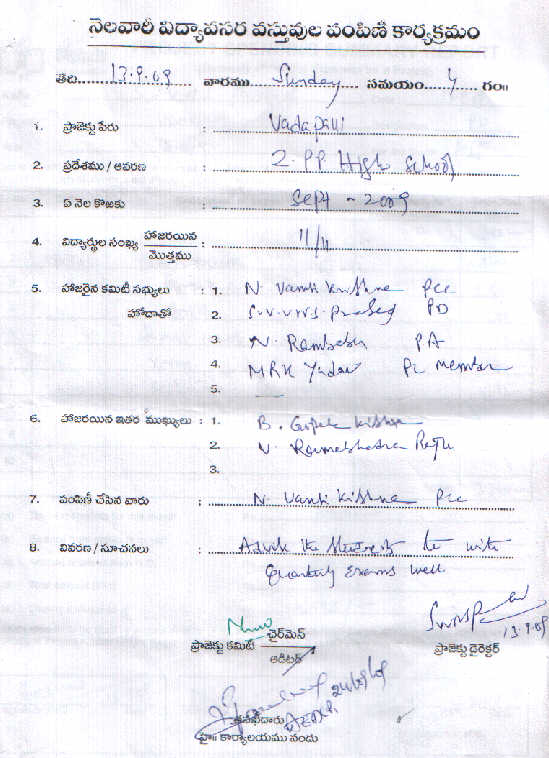 నెలవారీ విద్యావసర వస్తువుల పంపిణీ కార్యక్రమం
తేది 13.9.09 వారము Sunday సమయం 4 గం॥
1. ప్రాజెక్టు పేరు : Vadapalli
2. ప్రదేశము / ఆవరణ : Z.P.P High School
3. ఏ నెల కొఱకు : Sept - 2009
4. విద్యార్థుల సంఖ్య హాజరయిన / మొత్తము : 11/11
5. హాజరైన కమిటీ సభ్యులు : 1. N. Vamsi Krishna PCC
హోదాతో 2. S.V.V.N.S. Prasad PD
3. N. Rambabu PA
4. MRK Yadav PC member
5. —
6. హాజరయిన ఇతర ముఖ్యులు : 1. B. Gopala Krishna
2. V. Ramabhadra Raju
3.
7. పంపిణీ చేసిన వారు : N. Vamsi Krishna PCC
8. వివరణ / సూచనలు : the students to write
Quarterly Exams well
ప్రాజెక్టు కమిటీ ఛైర్‌మెన్
ఆడిటర్
13.9.09
ప్రాజెక్టు డైరెక్టర్
24/9/09
తనిఖీదారు
హె॥ కార్యాలయము నందు